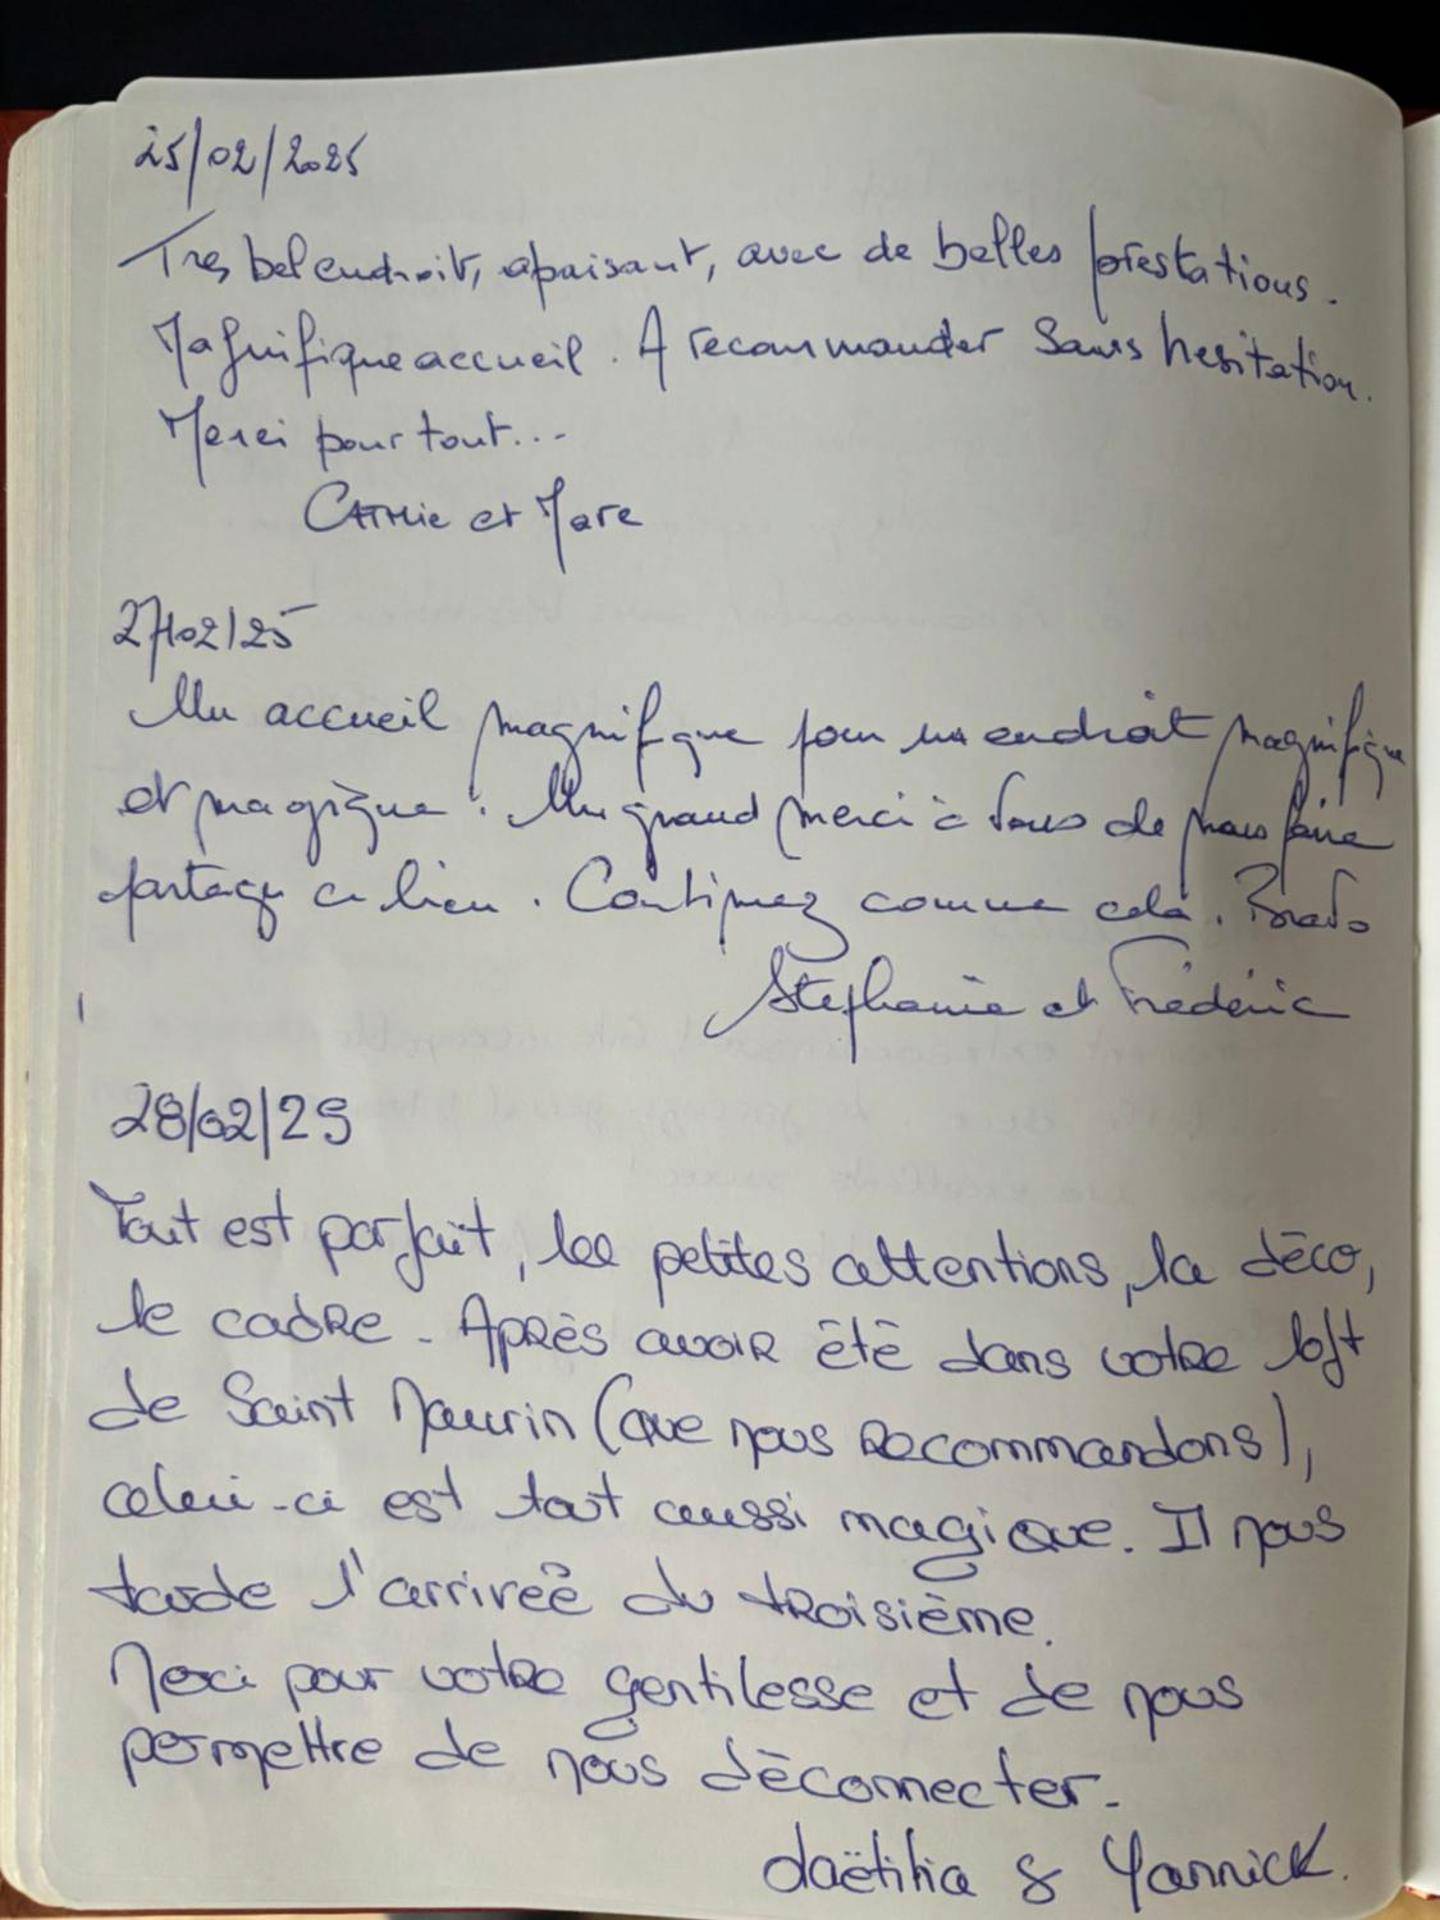 25/02/2025
Tres bel endroit, apaisant, avec de belles prestations.
Magnifique accueil. A recommander sans hesitation.
Merci pour tout...
Cathie et Marc
27/02/25
Un accueil magnifique pour un endroit magnifique
et magique. Un grand merci à vous de nous faire
partager ce lieu. Continuez comme cela. Bravo
Stephanie et Frédéric
28/02/25
Tout est parfait, les petites attentions, la déco,
le cadre. Après avoir été dans votre loft
de Saint Maurin (que nous recommandons),
celui-ci est tout aussi magique. Il nous
tarde l'arrivée du troisième.
Merci pour votre gentilesse et de nous
permettre de nous déconnecter.
Laëtitia & Yannick.